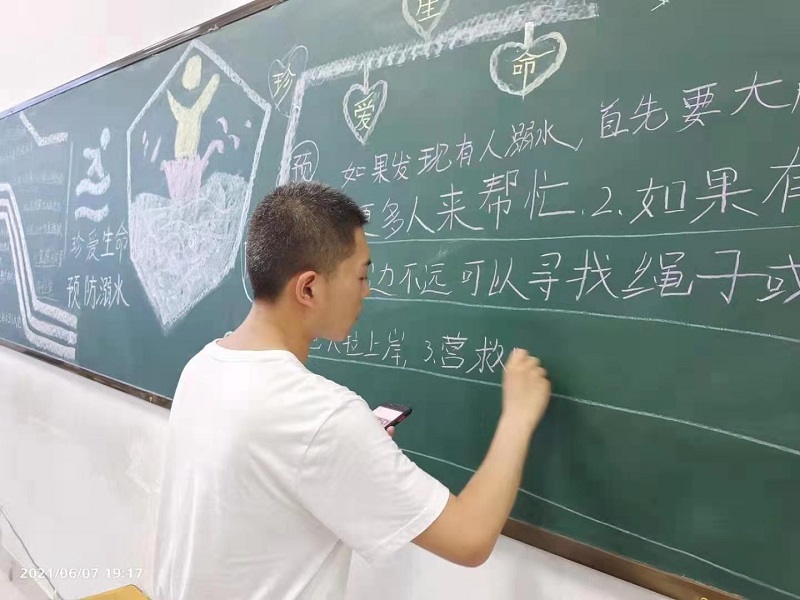 珍爱生命
预防溺水
珍
爱
生
命
预
如果发现有人溺水,首先要大
更多人来帮忙.2.如果有
边不远可以寻找绳子或
人拉上岸,3.营救
2021/06/07 19:17